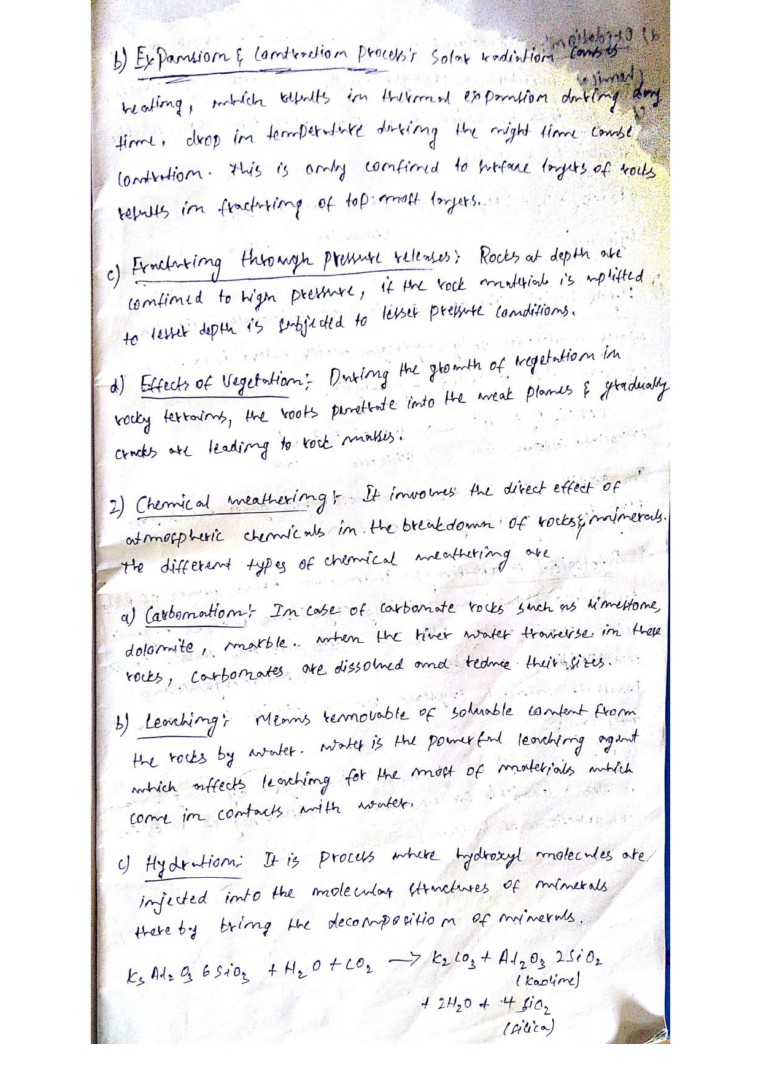 b) Expansion & Contraction Process: Solar radiation causes
heating, which results in thermal expansion during day
time, drop in temperature during the night time cause
contration. This is only confined to surface layers of rocks
results in fracturing of top most layers.
c) Fracturing through pressure releases: Rocks at depth are
confined to high pressure, if the rock materials is uplifted
to lesser depth is subjected to lesser pressure conditions.
d) Effects of Vegetation:- During the growth of vegetation in
rocky terrains, the roots penetrate into the weak planes & gradually
cracks are leading to rock masses.
2) Chemical weathering:- It involves the direct effect of
atmospheric chemicals in the breakdown of rocks & minerals.
The different types of chemical weathering are
a) Carbonation:- In case of carbonate rocks such as limestone,
dolomite, marble. when the river water traverse in these
rocks, carbonates are dissolved and reduce their sizes.
b) Leaching: Means removable of soluable content from
the rocks by water. Water is the powerful leaching agent
which affects leaching for the most of materials which
come in contacts with water.
c) Hydration: It is process where hydroxyl molecules are
injected into the molecular structures of minerals
there by bring the decomposition of minerals.
K₅ Al₂ O₃ 6 SiO₃ + H₂O + CO₂ → K₂CO₃ + Al₂O₃ 2SiO₂
(Kaoline)
+ 2H₂O + 4 SiO₂
(silica)